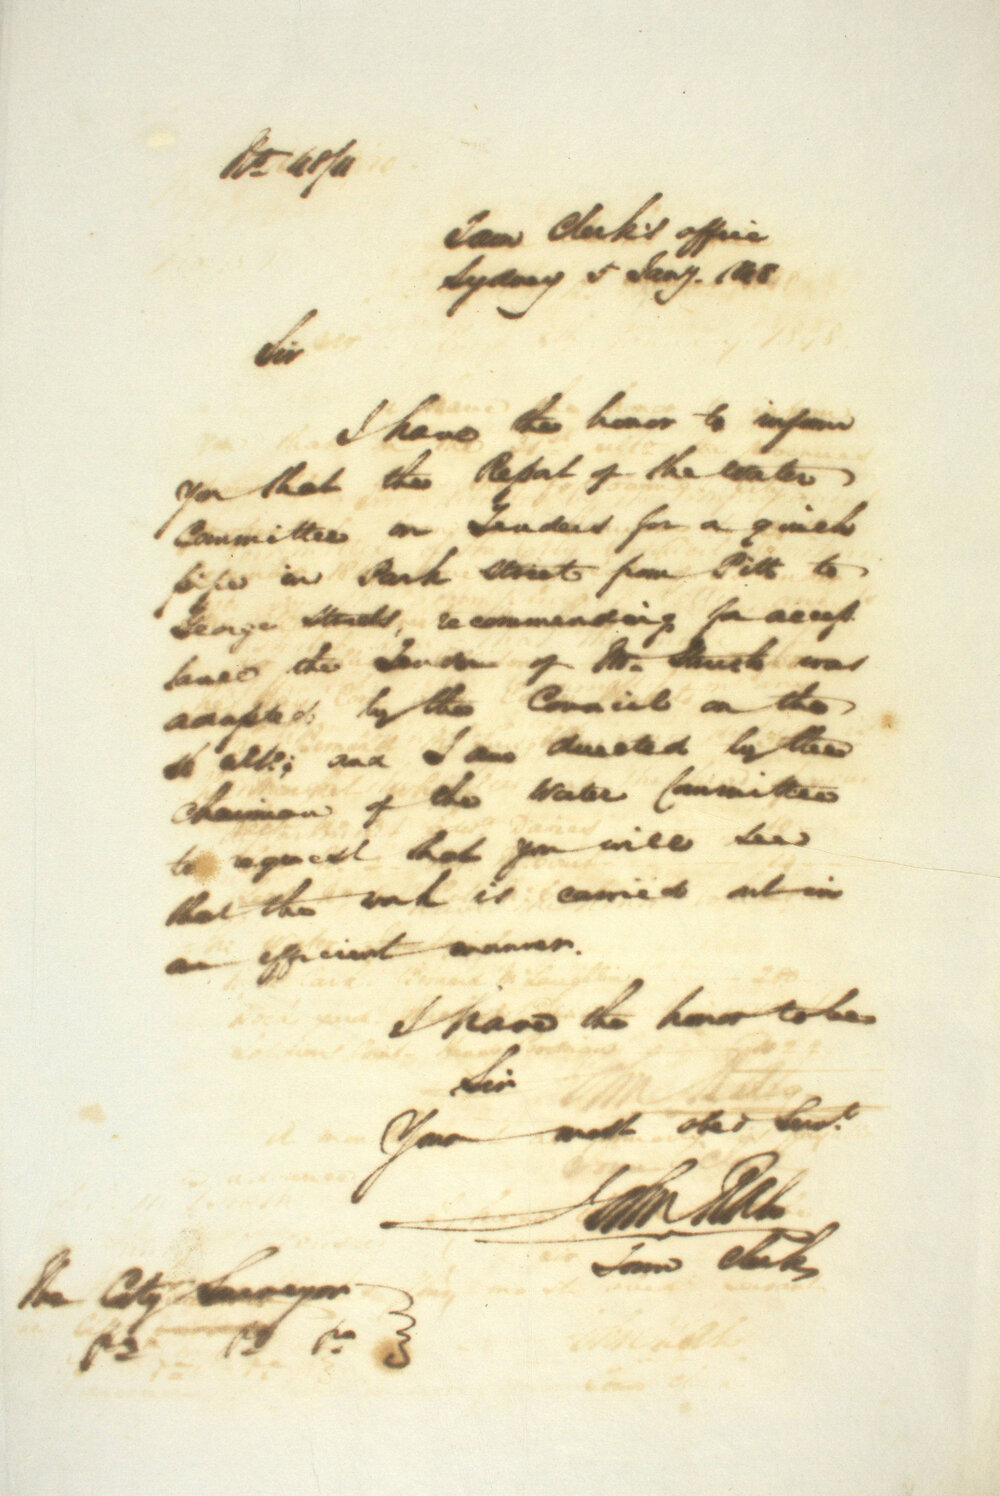 No. 48/4
Town Clerk's office
Sydney 5 Jany. 1848
Sir
I have the honor to inform
you that the Report of the Water
Committee on Tenders for a 9 inch
pipe in Park Street from Pitt to
George Streets, recommending for accep
tance the Tender of Mr. was
adopted by the Council on the
ulto; and I am directed by the
Chairman of the Water Committee
to request that you will see
that the work is carried out in
an efficient manner.
I have the honor to be
Sir
Your most obed Servt.
John Rae
Town Clerk
The City Surveyor